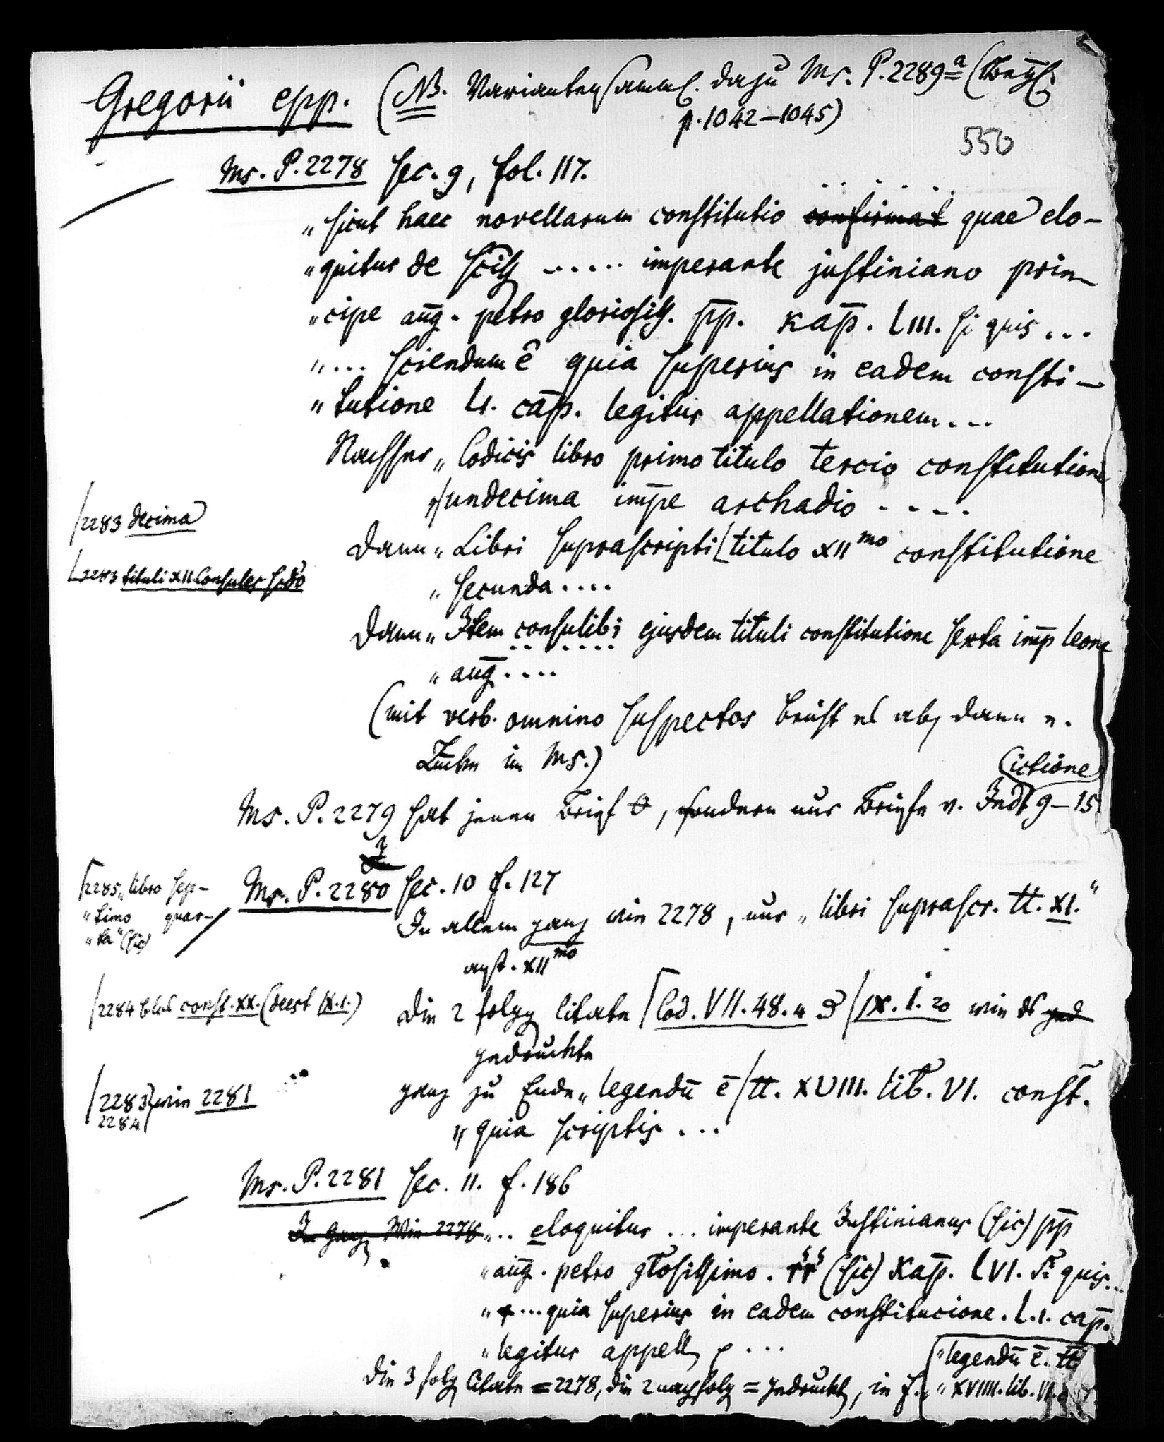 Gregorii epp. (NB. Variantensamml. dazu Ms. P. 2289ᵃ (
p. 1042–1045)
550
Ms. P. 2278 sec. 9, fol. 117.
„sicut haec novellarum constitutio confirmat quae elo-
„quitur de ..... imperante justiniano prin-
„cipe aug. petro gloriosiss. pp. Kap. LIII. si quis ...
„... sciendum ê quia superius in eadem consti-
„tutione LI. cap. legitur appellationem...
Nachher „Codicis libro primo titulo tercio constitutione
„undecima impe archadio .....
/2283 decima
dann „Libri suprascripti [titulo XIImo constitutione
„secunda....
2283 tituli XII. Consules
dann „Item consulibi ejusdem tituli constitutione sexta imp leone
„aug....
(mit verb. omnino suspectos bricht es ab, dann e.
Lücke im Ms.)
Ms. P. 2279 hat jenen Brief θ, sondern nur Briefe v. Indictione 9–15
Ms. P. 2280 sec. 10 f. 127
In allem ganz wie 2278, nur „libri suprascr. tt. XI.“
anst. XIImo
[2285 „libro sep-
„timo quar-
„ta“ (sic)
die 2 folgg Citate [Cod. VII. 48. 4 & [IX. 1. 20 wie ds ged
gedruckte
/2284 blos const. XX. (deest IX. 1.)
ganz zu Ende „legendū ē / tt. XVIII. lib. VI. const.
„quia scriptis ...
/2283 } wie 2281
2284
Ms. P. 2281 sec. 11. f. 186
In ganz Wie 2278 „.. eloquitur ... imperante Justinianus (sic) pp
„aug. petro glosissimo. rr (sic) Kap. LVI. Si quis...
„....quia superius in eadem constitucione. L.I. cap.
„legitur appell ...
die 3 folg Citate = 2278, die 2 nachfolg = gedruckt, in f.
„legendū ē. tt
„XVIII. lib. VI.